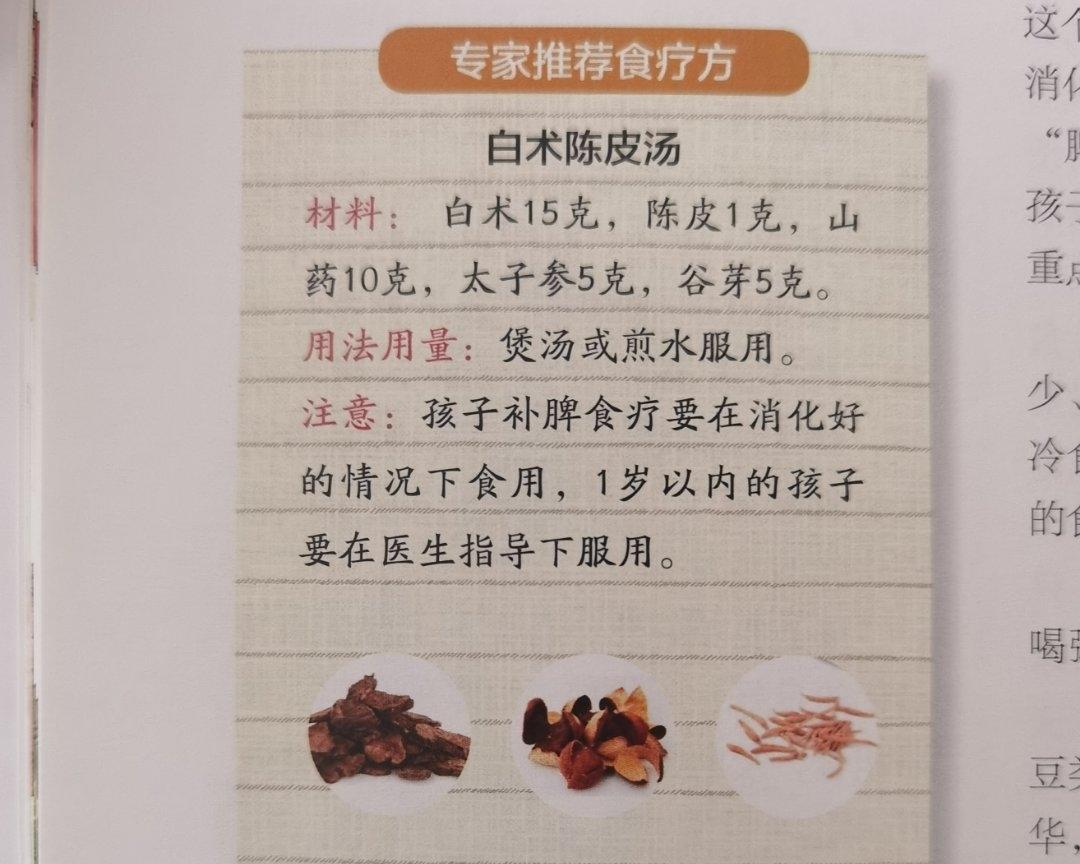 专家推荐食疗方
白术陈皮汤
材料： 白术15克，陈皮1克，山
药10克，太子参5克，谷芽5克。
用法用量：煲汤或煎水服用。
注意：孩子补脾食疗要在消化好
的情况下食用，1岁以内的孩子
要在医生指导下服用。
这
消
孩
重
少、
冷
的
喝
豆
华，